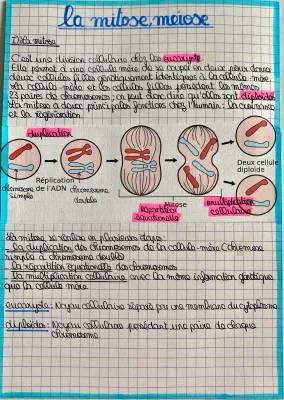 la mitose, meiose
D la mitose
C'est une division cellulaire chez les eucaryote.
Elle permet à une cellule mère de se couper en deux pour donner
deux cellules filles génétiquement identiques à la cellule-mère.
La cellule-mère et les cellules filles possèdent les mêmes
23 paires de chromosomes; on peut donc dire qu'elles sont diploïdes
La mitose a deux principales fonctions chez l'humain: la croissance
et la régénération.
duplication
Réplication
de l'ADN
chromosome
simple
chromosome
double
Mitose
répartition
équationnelle
Deux cellule
diploïde
multiplication
cellulaire
La mitose se réalise en plusieurs étapes:
la duplication des chromosomes de la cellule-mère (chromosome
simple à chromosome double)
la répartition équationnelle des chromosomes
la multiplication cellulaire avec la même information génétique
que la cellule mère
eucaryote: Noyau cellulaire séparé par une membrane du cytoplasme
diploïdes: Noyau cellulaire possédant une paire de chaque
chromosome.